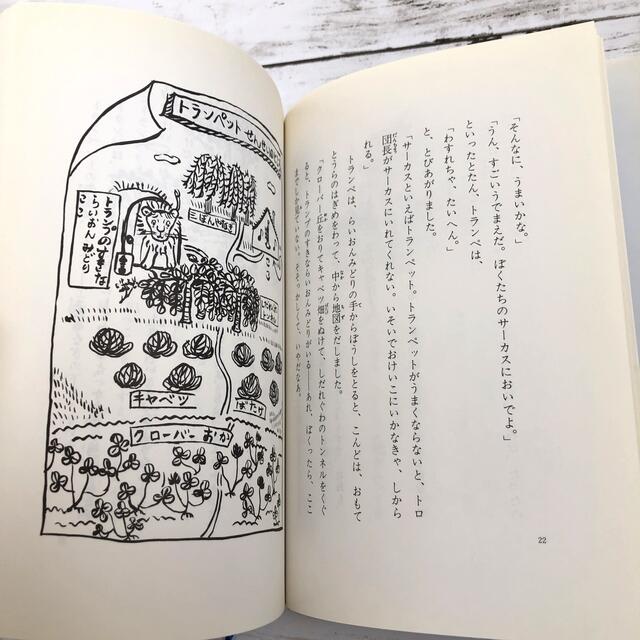 「そんなに、うまいかな。」
「うん、すごいうでまえだ。ぼくたちのサーカスにおいでよ。」
といったとたん、トランペは、
「わすれちゃ、たいへん。」
と、とびあがりました。
「サーカスといえばトランペット。トランペットがうまくならないと、トロ
団長がサーカスにいれてくれない。いそいでおけいこにいかなきゃ、しから
れる。」
トランペは、らいおんみどりの手からぼうしをとると、こんどは、おもて
とうらのはぎめをわって、中から地図をだしました。
「クローバー丘をおりてキャベツ畑をぬけて、しだれぐわのトンネルをくぐ
ると、トランプのすきならいおんみどりがいる――あれ、ぼくったら、ここ
までしか
22
トランペット せん
三ぼんやなぎ
トランプのすきな
らいおん みどり
ここ
キャベツ
ばたけ
クローバー おか